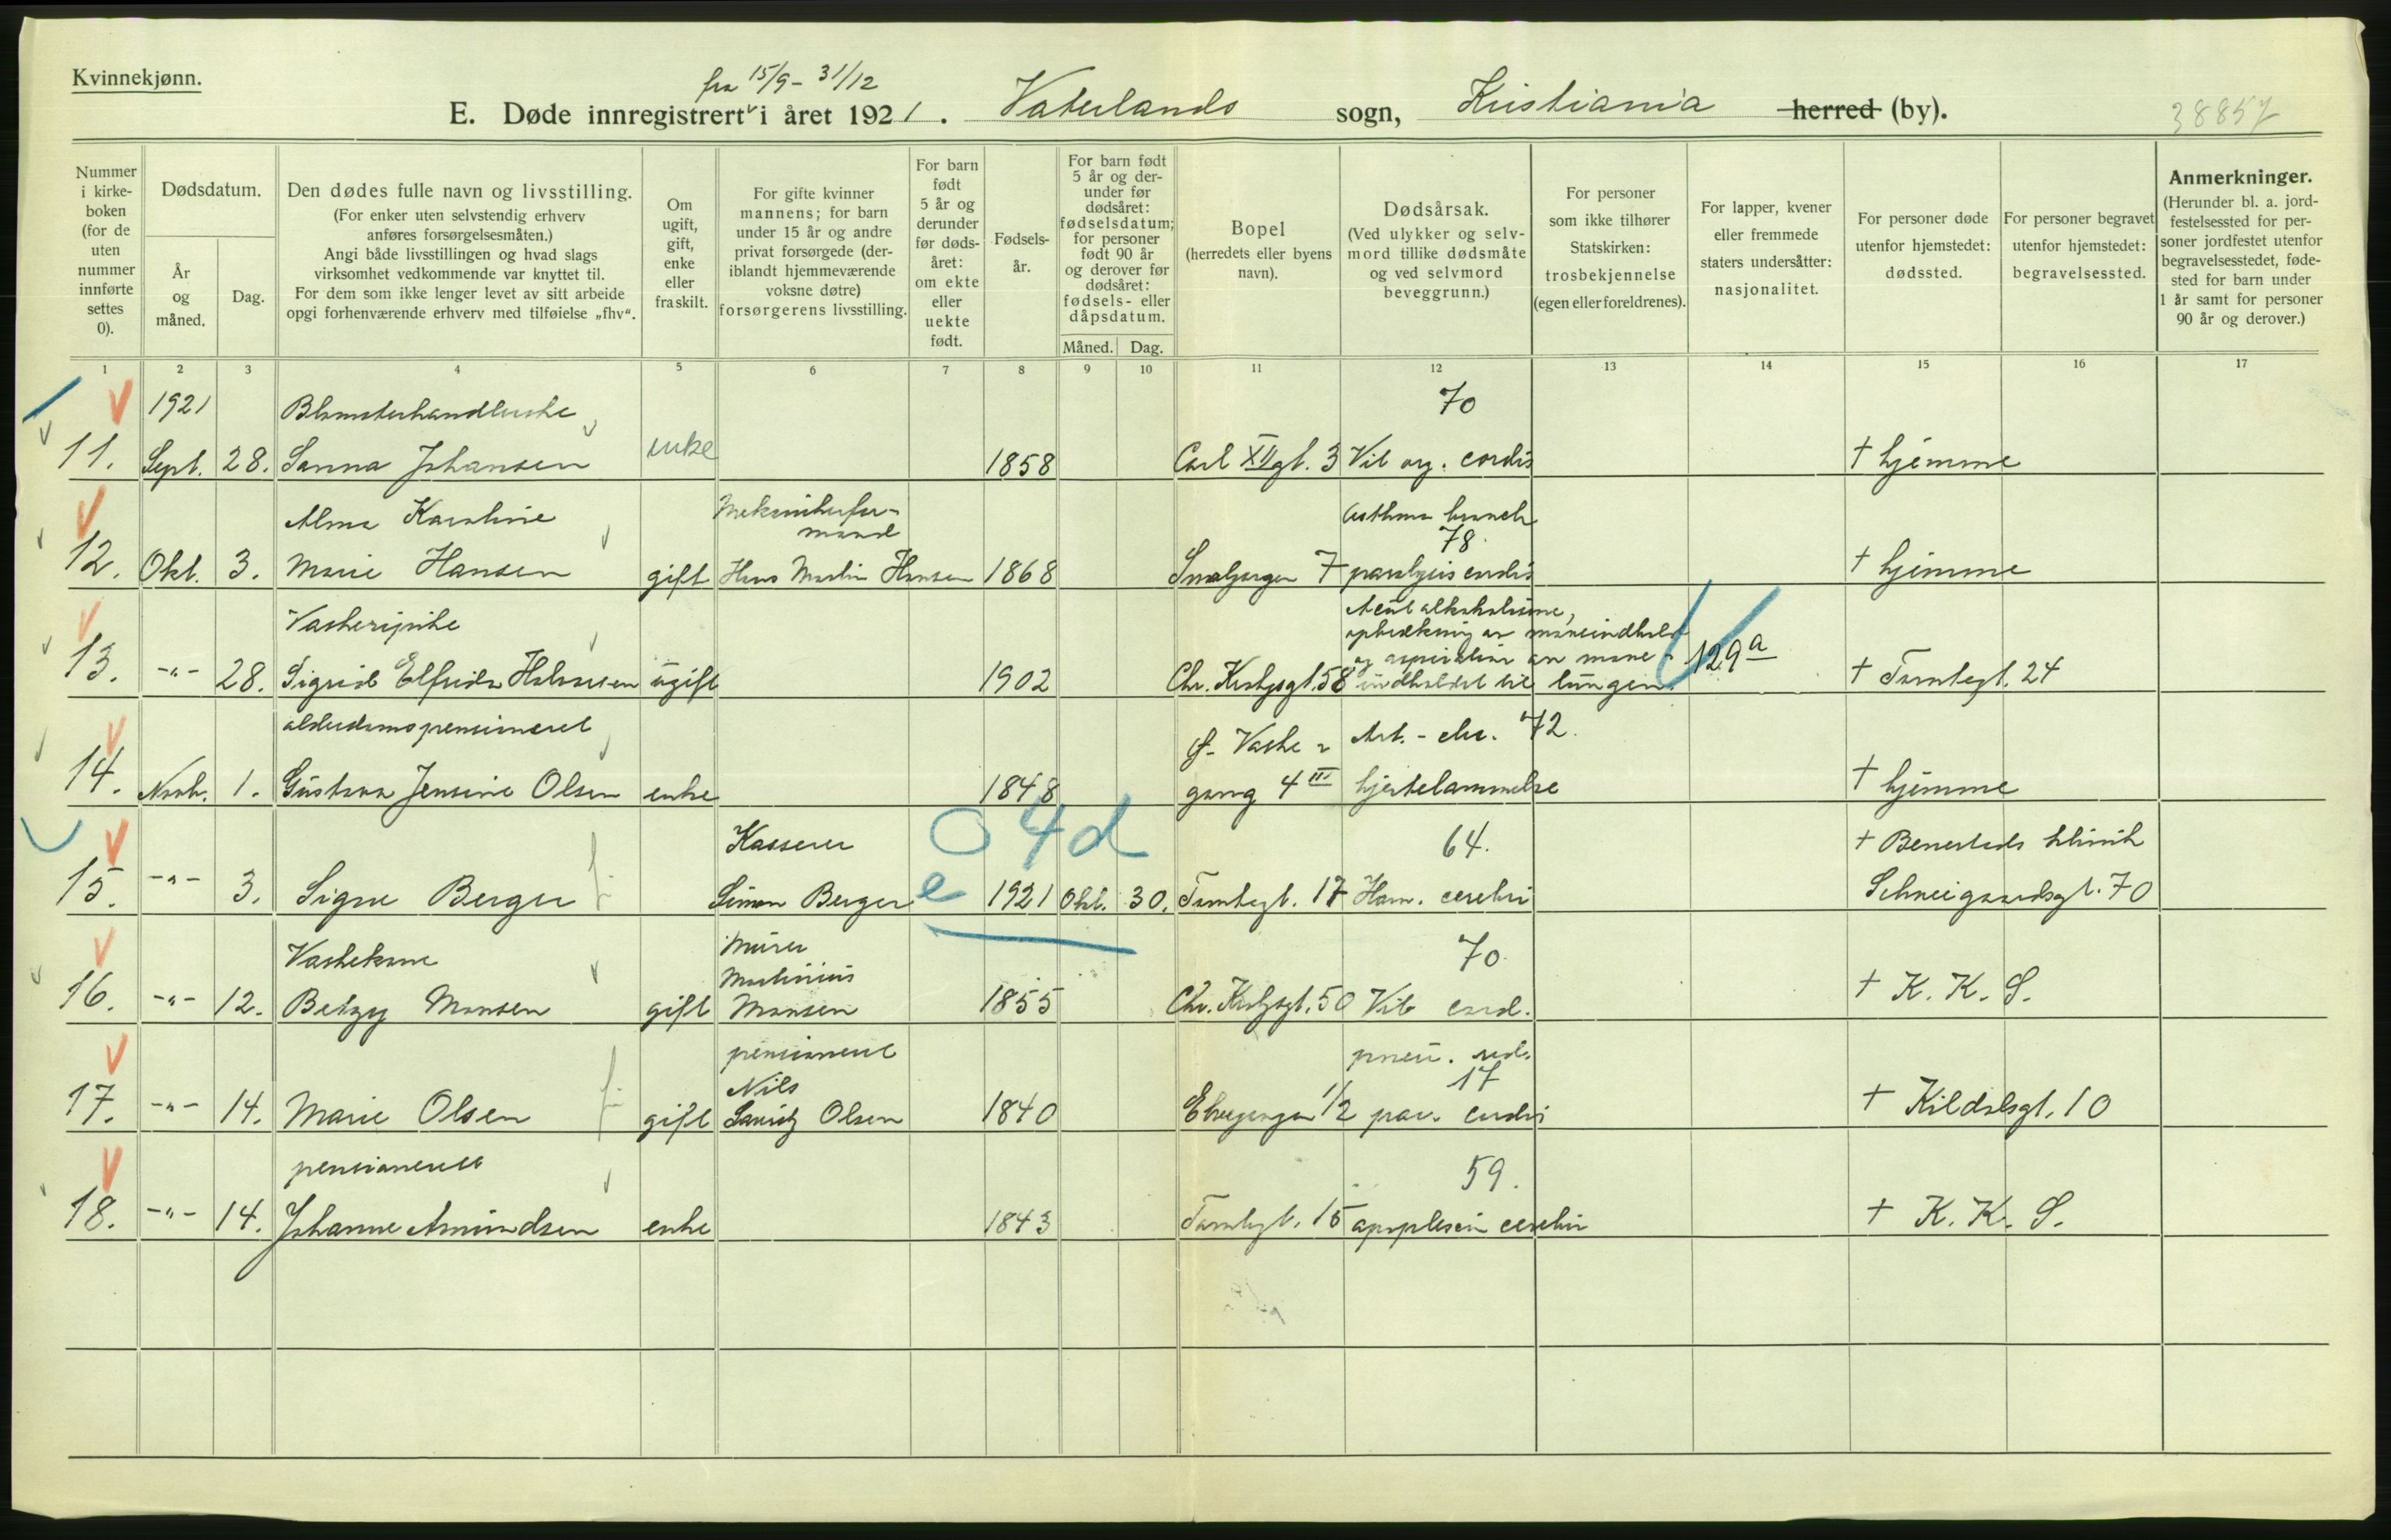 Kvinnekjønn.
fra 15/9 - 31/12
E. Døde innregistrert i året 1921. Vaterlands sogn, Kristiania herred (by).
38857
Nummer i kirkeboken (for de uten nummer innførte settes 0).
Dødsdatum.
År og måned.
Dag.
Den dødes fulle navn og livsstilling.
(For enker uten selvstendig erhverv anføres forsørgelsesmåten.)
Angi både livsstillingen og hvad slags virksomhet vedkommende var knyttet til.
For dem som ikke lenger levet av sitt arbeide opgi forhenværende erhverv med tilføielse „fhv“.
Om ugift, gift, enke eller fraskilt.
For gifte kvinner mannens; for barn under 15 år og andre privat forsørgede (deriblandt hjemmeværende voksne døtre) forsørgerens livsstilling.
For barn født 5 år og derunder før dødsåret: om ekte eller uekte født.
Fødselsår.
For barn født 5 år og derunder før dødsåret: fødselsdatum; for personer født 90 år og derover før dødsåret: fødsels- eller dåpsdatum.
Måned. Dag.
Bopel
(herredets eller byens navn).
Dødsårsak.
(Ved ulykker og selvmord tillike dødsmåte og ved selvmord beveggrunn.)
For personer som ikke tilhører Statskirken: trosbekjennelse (egen eller foreldrenes).
For lapper, kvener eller fremmede staters undersåtter: nasjonalitet.
For personer døde utenfor hjemstedet: dødssted.
For personer begravet utenfor hjemstedet: begravelsessted.
Anmerkninger.
(Herunder bl. a. jordfestelsessted for personer jordfestet utenfor begravelsesstedet, fødested for barn under 1 år samt for personer 90 år og derover.)
1 2 3 4 5 6 7 8 9 10 11 12 13 14 15 16 17
1921 Blomsterhandlerske 70
11. Sept. 28. Sanna Johansen enke 1858 Carl XII gt. 3 Vit org. cordis † hjemme
Alma Karoline formand Asthma bronch 78.
12. Okt. 3. Marie Hansen gift Hans Martin Hansen 1868 Smalgangen 7 paralysis cordis † hjemme
Vaskeripike Acut alkoholisme,
ophækning av maveindhold
og aspiration av mave- 129a
13. -"- 28. Sigrid Elfrida Halvorsen ugift 1902 Chr. Krohgsgt. 58 indholdet til lungen. † Tomtegt. 24
alderdomspensioneret Art. - chr. 72.
14. Novb. 1. Gustava Jensine Olsen enke 1848 gang 4 III hjertelammelse † hjemme
Kasserer 04d 64. † Benesteds klinik
15. -"- 3. Signe Berger Simon Berger e 1921 Okt. 30. Tomtegt. 17 Hæm. cerebri Schweigaardsgt. 70
Vaskekone Murer 70.
Martinius
16. -"- 12. Betzy Monsen gift Monsen 1855 Chr. Krohgsgt. 50 Vit cord. † K. K. S.
pensioneret pneu.
Nils 17
17. -"- 14. Marie Olsen gift Lauritz Olsen 1840 Elvegangen 1/2 par. cordis † Kildalsgt. 10
pensioneret 59.
18. -"- 14. Johanne Amundsen enke 1843 Tomtegt. 15 apoplexia cerebri † K. K. S.